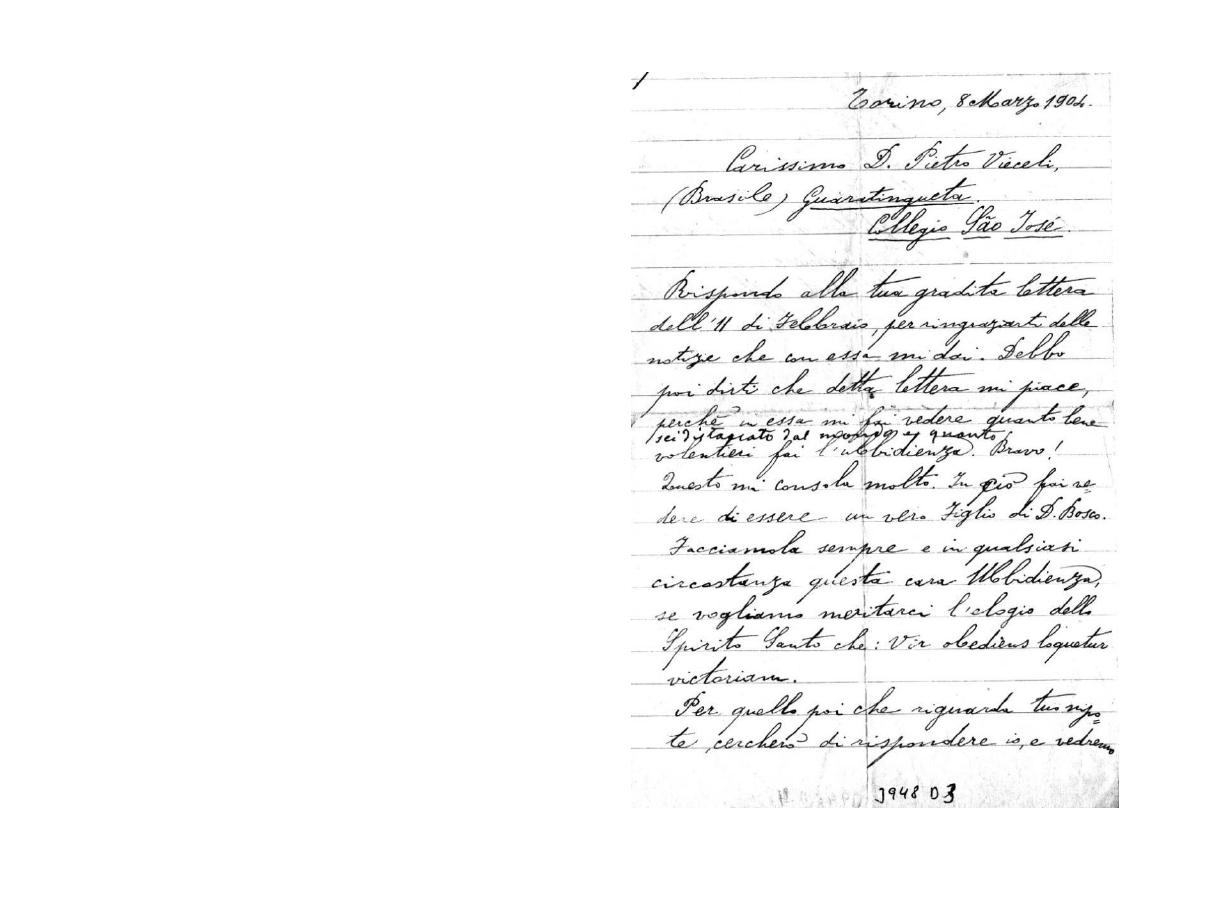 Torino, 8 Marzo 1904.
Carissimo D. Pietro Vieceli,
(Brasile) Guaratingueta.
Collegio São José.
Rispondo alla tua gradita lettera
dell'11 di Febbraio, per ringraziarti delle
notizie che con essa mi dai. Debbo
poi dirti che detta lettera mi piace,
perchè in essa mi fai vedere quanto bene
sei distaccato dal mondo, e quanto
volentieri fai l'ubbidienza. Bravo!
Questo mi consola molto. In ciò fai ve=
dere di essere un vero Figlio di D. Bosco.
Facciamola sempre e in qualsiasi
circostanza questa cara Ubbidienza,
se vogliamo meritarci l'elogio dello
Spirito Santo che: Vir obediens loquetur
victoriam.
Per quello poi che riguarda tuo nipo=
te, cercherò di rispondere io, e vedremo
J948 D3